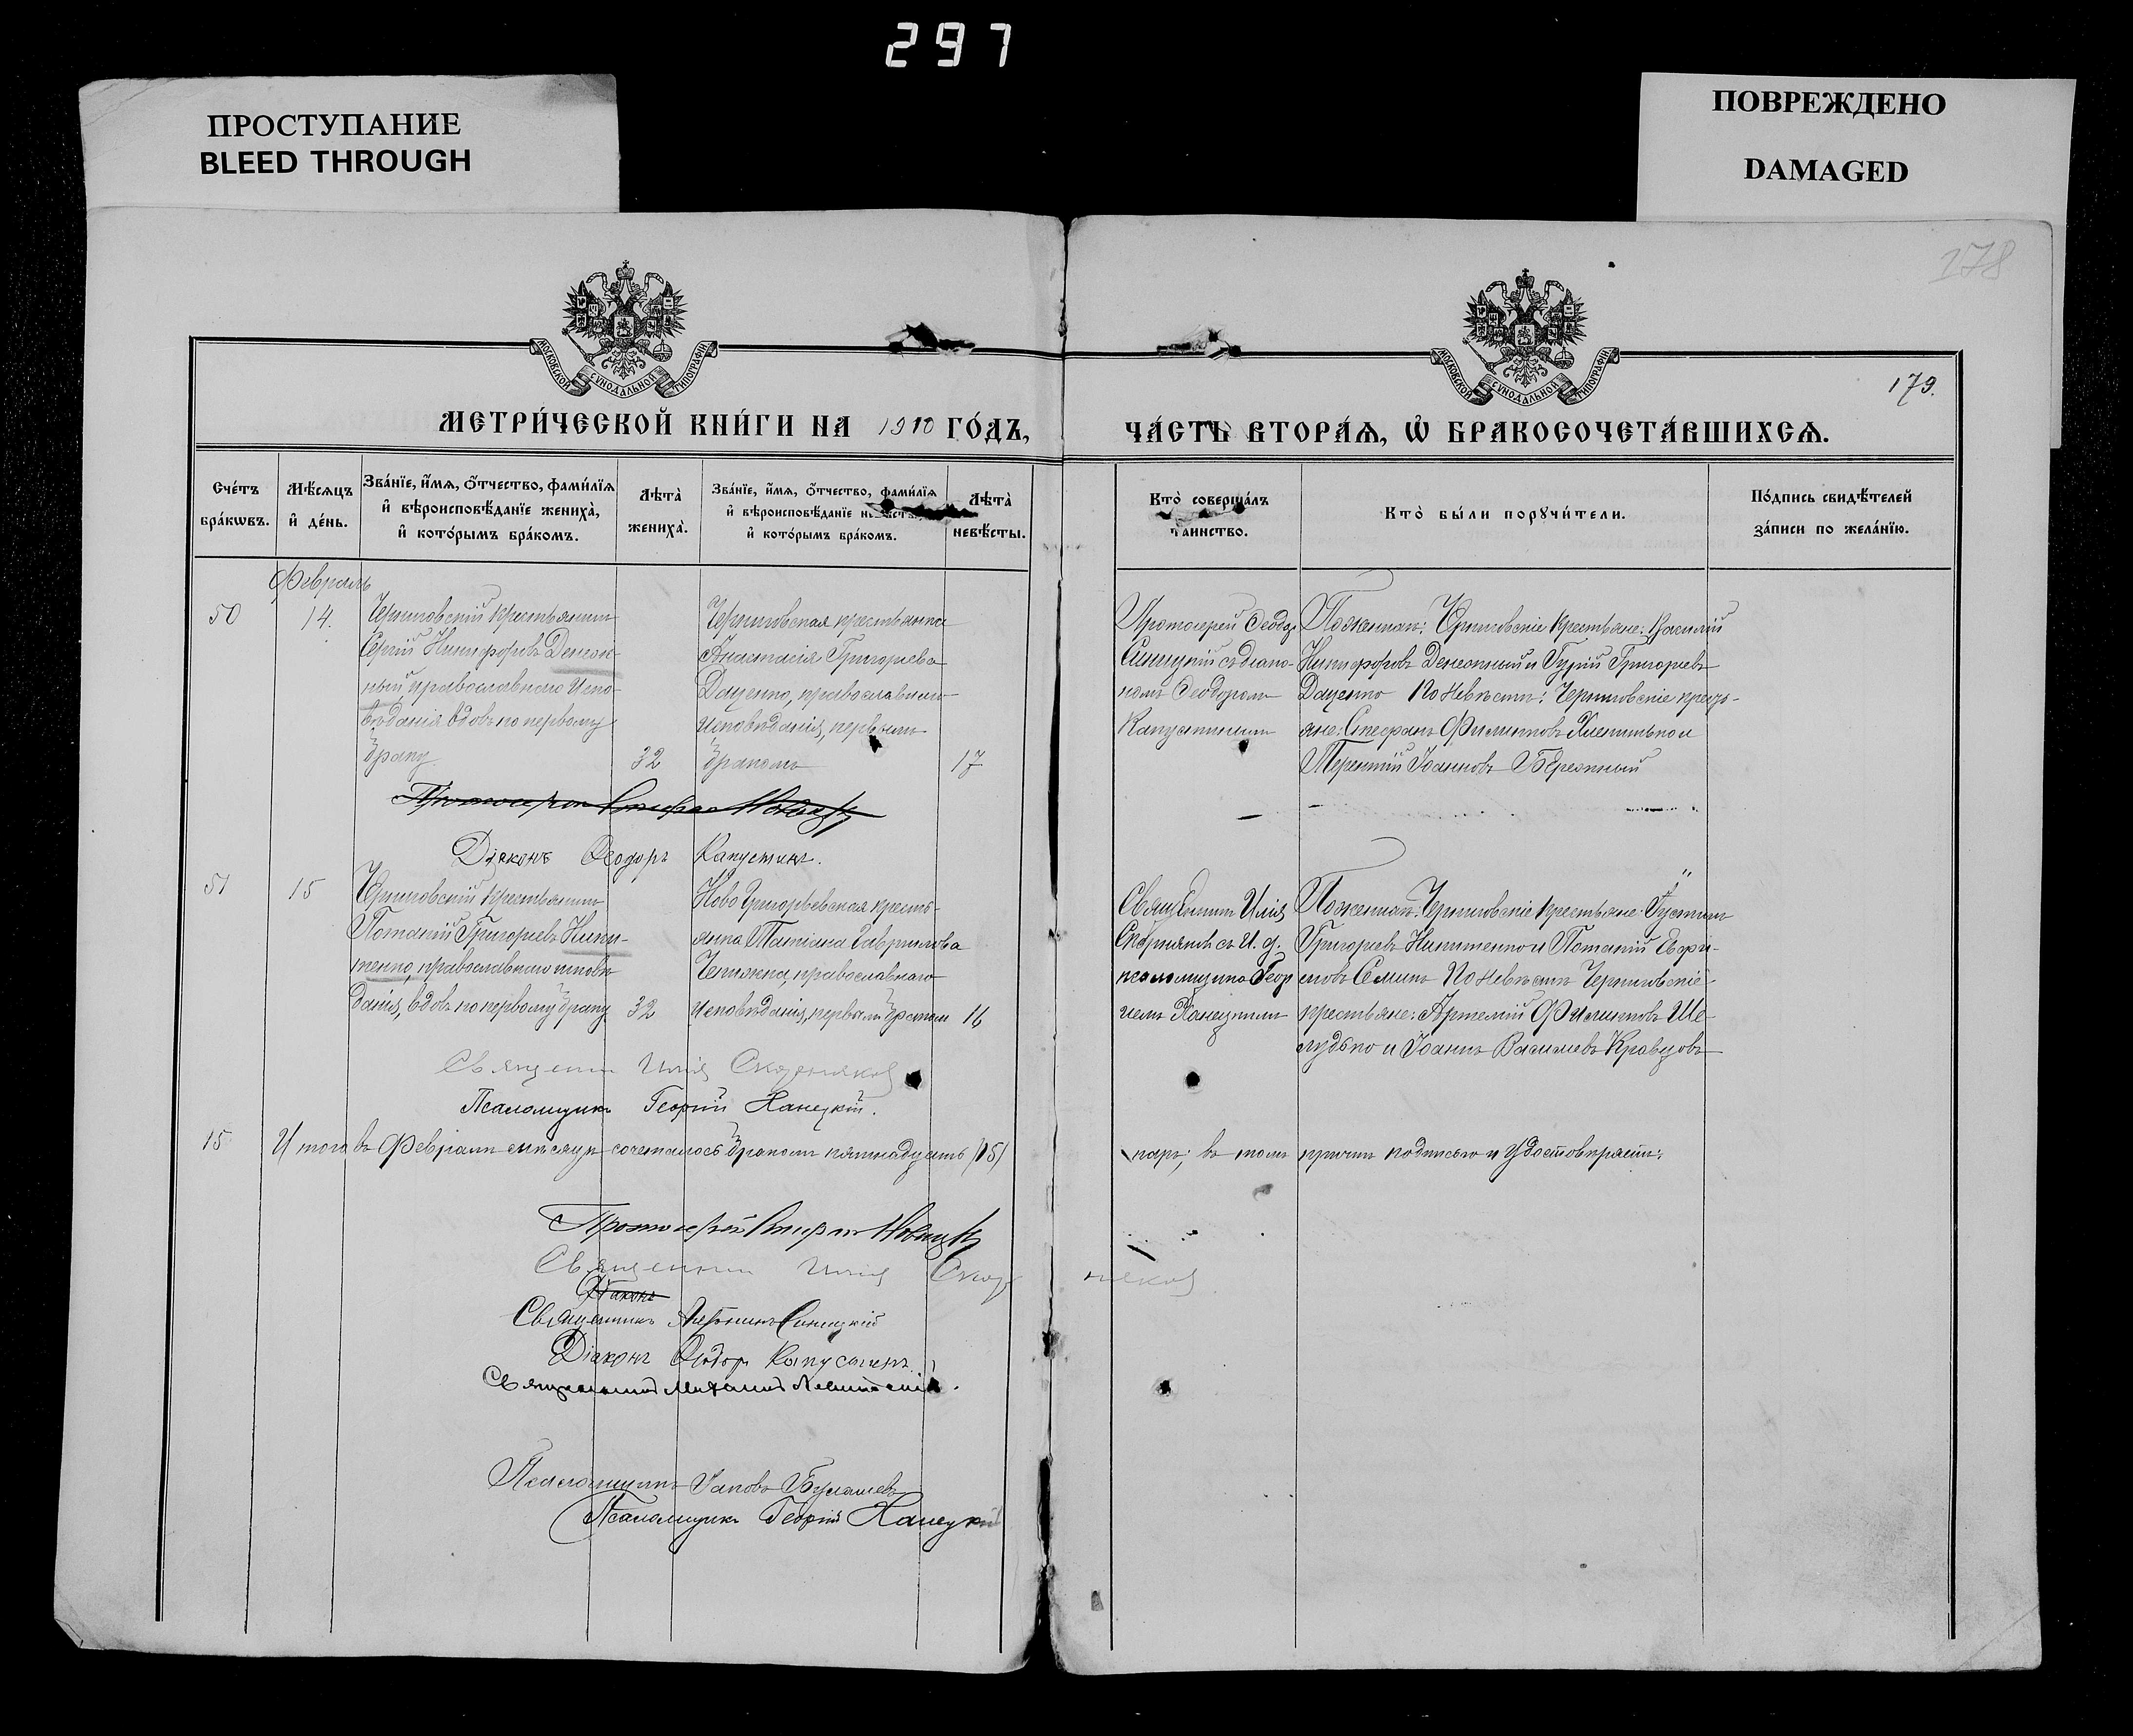 297
ПРОСТУПАНИЕ
BLEED THROUGH
ПОВРЕЖДЕНО
DAMAGED
178
179.
МОСКОВСКОЙ СѴНОДАЛЬНОЙ ТИПОГРАФІИ
МОСКОВСКОЙ СѴНОДАЛЬНОЙ ТИПОГРАФІИ
МЕТРИ́ЧЕСКОЙ КНИ́ГИ НА 1910 ГО́ДЪ,
ЧА́СТЬ ВТОРА́Ѧ, Ѽ БРАКОСОЧЕТА́ВШИХСѦ.
Сче́тъ
бра́кѡвъ.
Мѣ́сѧцъ
и҆ де́нь.
Зва́нїе, и҆́мѧ, ѻ҆́тчество, фами́лїѧ
и҆ вѣроисповѣ́данїе жениха̀,
и҆ кото́рымъ бра́комъ.
Лѣта̀
жениха̀.
Зва́нїе, и҆́мѧ, ѻ҆́тчество, фами́лїѧ
и҆ вѣроисповѣ́данїе
и҆ кото́рымъ бра́комъ.
Лѣта̀
невѣ́сты.
Кто̀ соверша́лъ
та́инство.
Кто̀ бы́ли порꙋчи́тели.
По́дпись свидѣ́телей
за́писи по жела́нїю.
Февраль
50
14.
Черниговскій крестьянинъ
Сергій Никифоровъ Денеж-
ный, православнаго испо-
вѣданія вдовъ по первому
браку.
32
Черниговская крестьянка
Анастасія Григорьева
Даценко, православнаго
исповѣданія, первымъ
бракомъ
17
Протоіерей Ѳеодор
Синицкій съ діако-
номъ Ѳеодоромъ
Капустинымъ
По женихѣ: Черниговскіе крестьяне: Василій
Никифоровъ Денежный и Гурій Григорьевъ
Даценко По невѣстѣ: Черниговскіе кресть-
яне: Стефанъ Филипповъ и
Терентій Іоанновъ Бережный
Протоіерей Стефанъ
Діаконъ Ѳеодоръ Капустинъ.
51
15
Черниговскій крестьянинъ
Потапій Григорьевъ Ники-
тенко, православнаго исповѣ-
данія, вдовъ по первому браку
32
Ново Григорьевская кресть-
янка Татіана Гаврилова
православнаго
исповѣданія, первымъ бракомъ
16
Священникъ Илія
Скорняковъ съ И. д.
псаломщика Геор
гіемъ Ханецкимъ
По женихѣ: Черниговскіе крестьяне: Іустинъ
Григорьевъ Никитенко и Потапій Ефи-
мовъ Семинъ По невѣстѣ Черниговскіе
крестьяне: Артемій Филипповъ Ше-
лудько и Іоаннъ Василіевъ Кравцовъ
Священникъ Илія Скорняковъ
Псаломщикъ Георгій Ханецкій.
15
Итого въ Февралѣ мѣсяцѣ сочеталось бракомъ пятнадцать (15)
паръ; въ томъ причтъ подписью и удостовѣряетъ:
Протоіерей Стефанъ
Священникъ Илія Скорняковъ
Діаконъ
Священникъ Синицкій
Діаконъ Ѳеодоръ Капустинъ
Священникъ Михаилъ
Псаломщикъ Іаковъ Булашевъ
Псаломщикъ Георгій Ханецкій